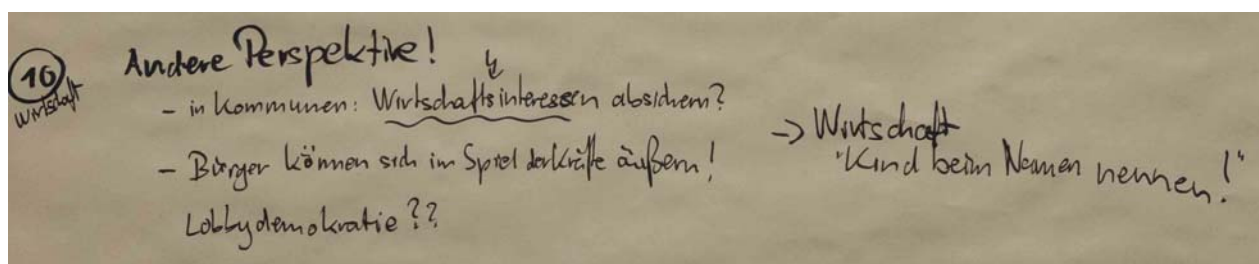 10
Wirtschaft
Andere Perspektive!
- in Kommunen: Wirtschaftsinteressen absichern?
- Bürger können sich im Spiel der Kräfte äußern!
Lobbydemokratie??
-> Wirtschaft
"Kind beim Namen nennen!"